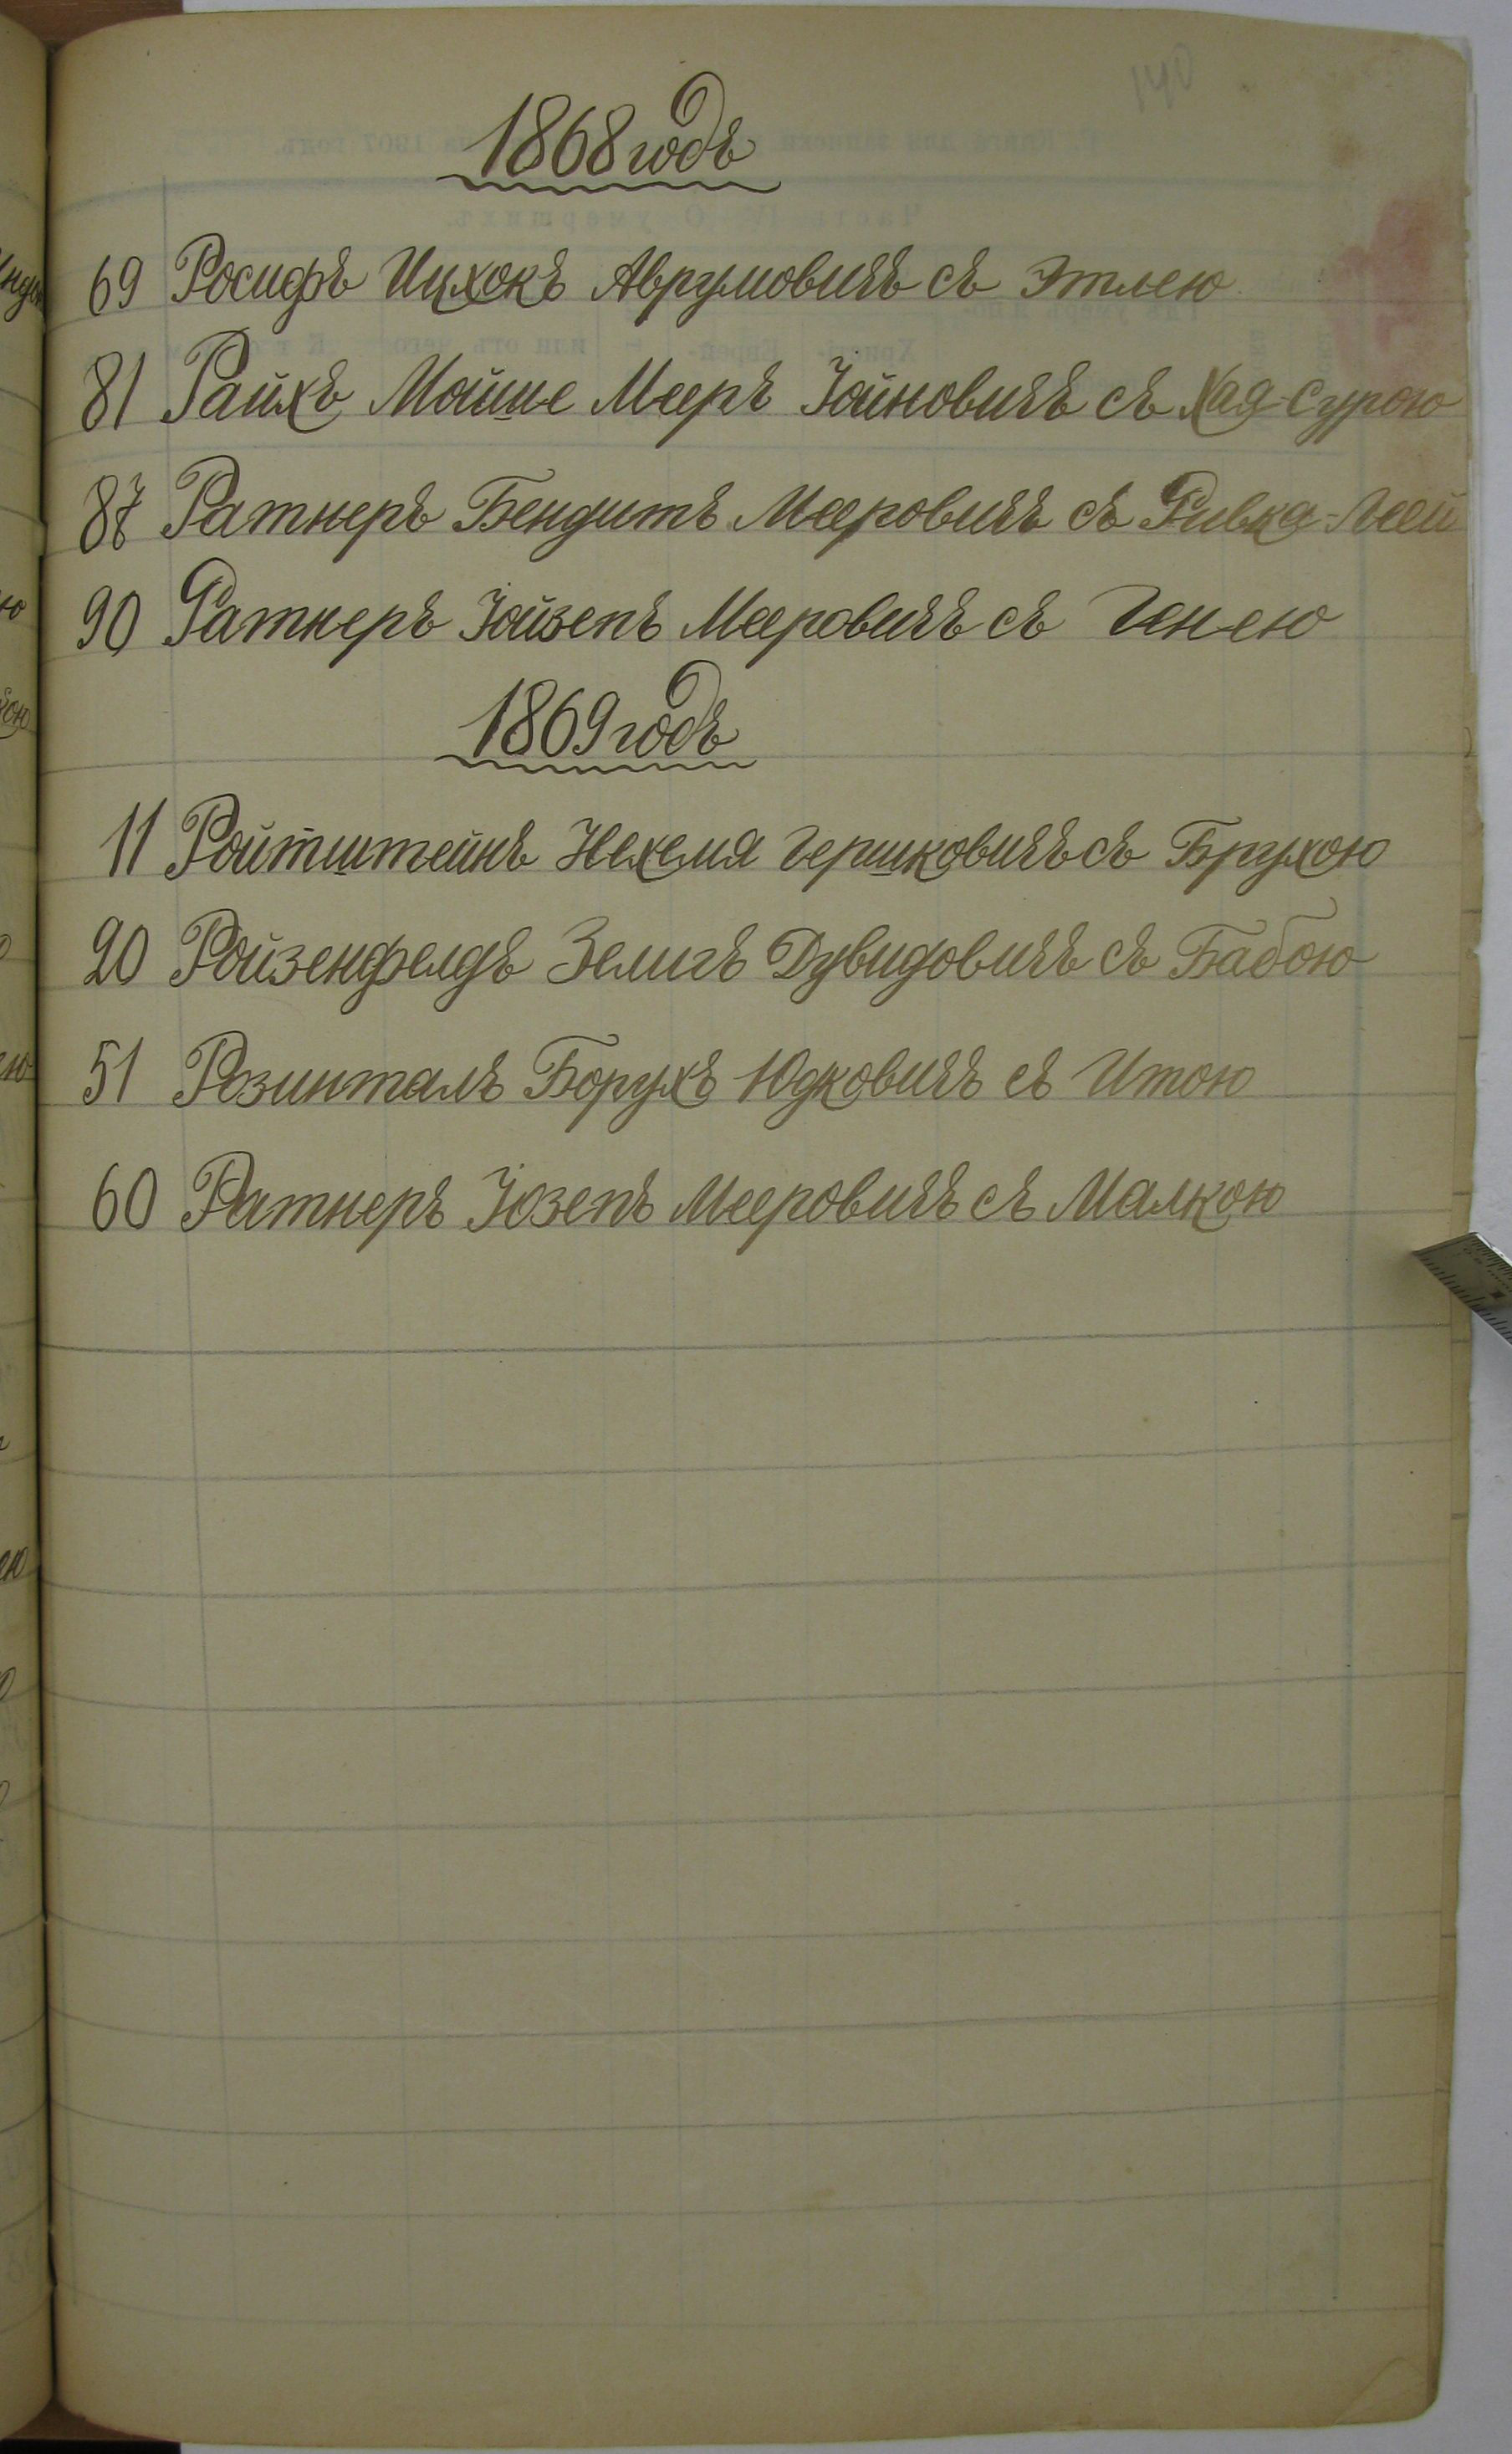 140
1868 годъ
69 Росифъ Ицхокъ Аврумовичъ съ Этлею
81 Райхъ Мойше Мееръ Іойновичъ съ Хая-Сурою
87 Ратнеръ Бендитъ Мееровичъ съ Ривка-Леей
90 Ратнеръ Іойзепъ Мееровичъ съ Генею
1869 годъ
11 Ройтштейнъ Нехемя Гершковичъ съ Брухою
20 Ройзенфелдъ Зелигъ Дувидовичъ съ Бабою
51 Розинталъ Борухъ Юдковичъ съ Итою
60 Ратнеръ Іозепъ Мееровичъ съ Малкою